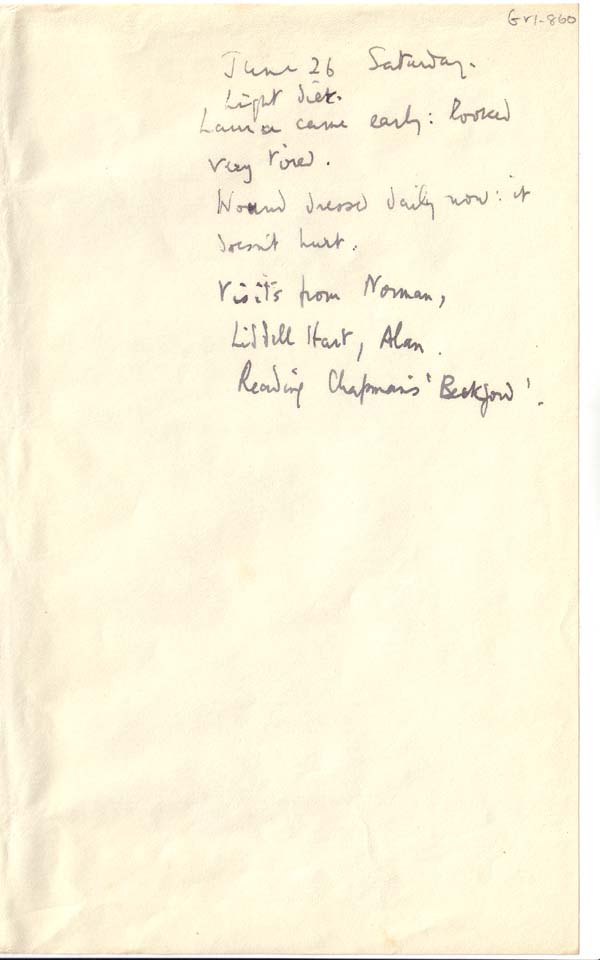 Gr1-860
June 26 Saturday.
Light diet.
Laura came early: looked
very tired.
Wound dressed daily now: it
doesn't hurt.
Visits from Norman,
Liddell Hart, Alan.
Reading Chapman's 'Beckford'.